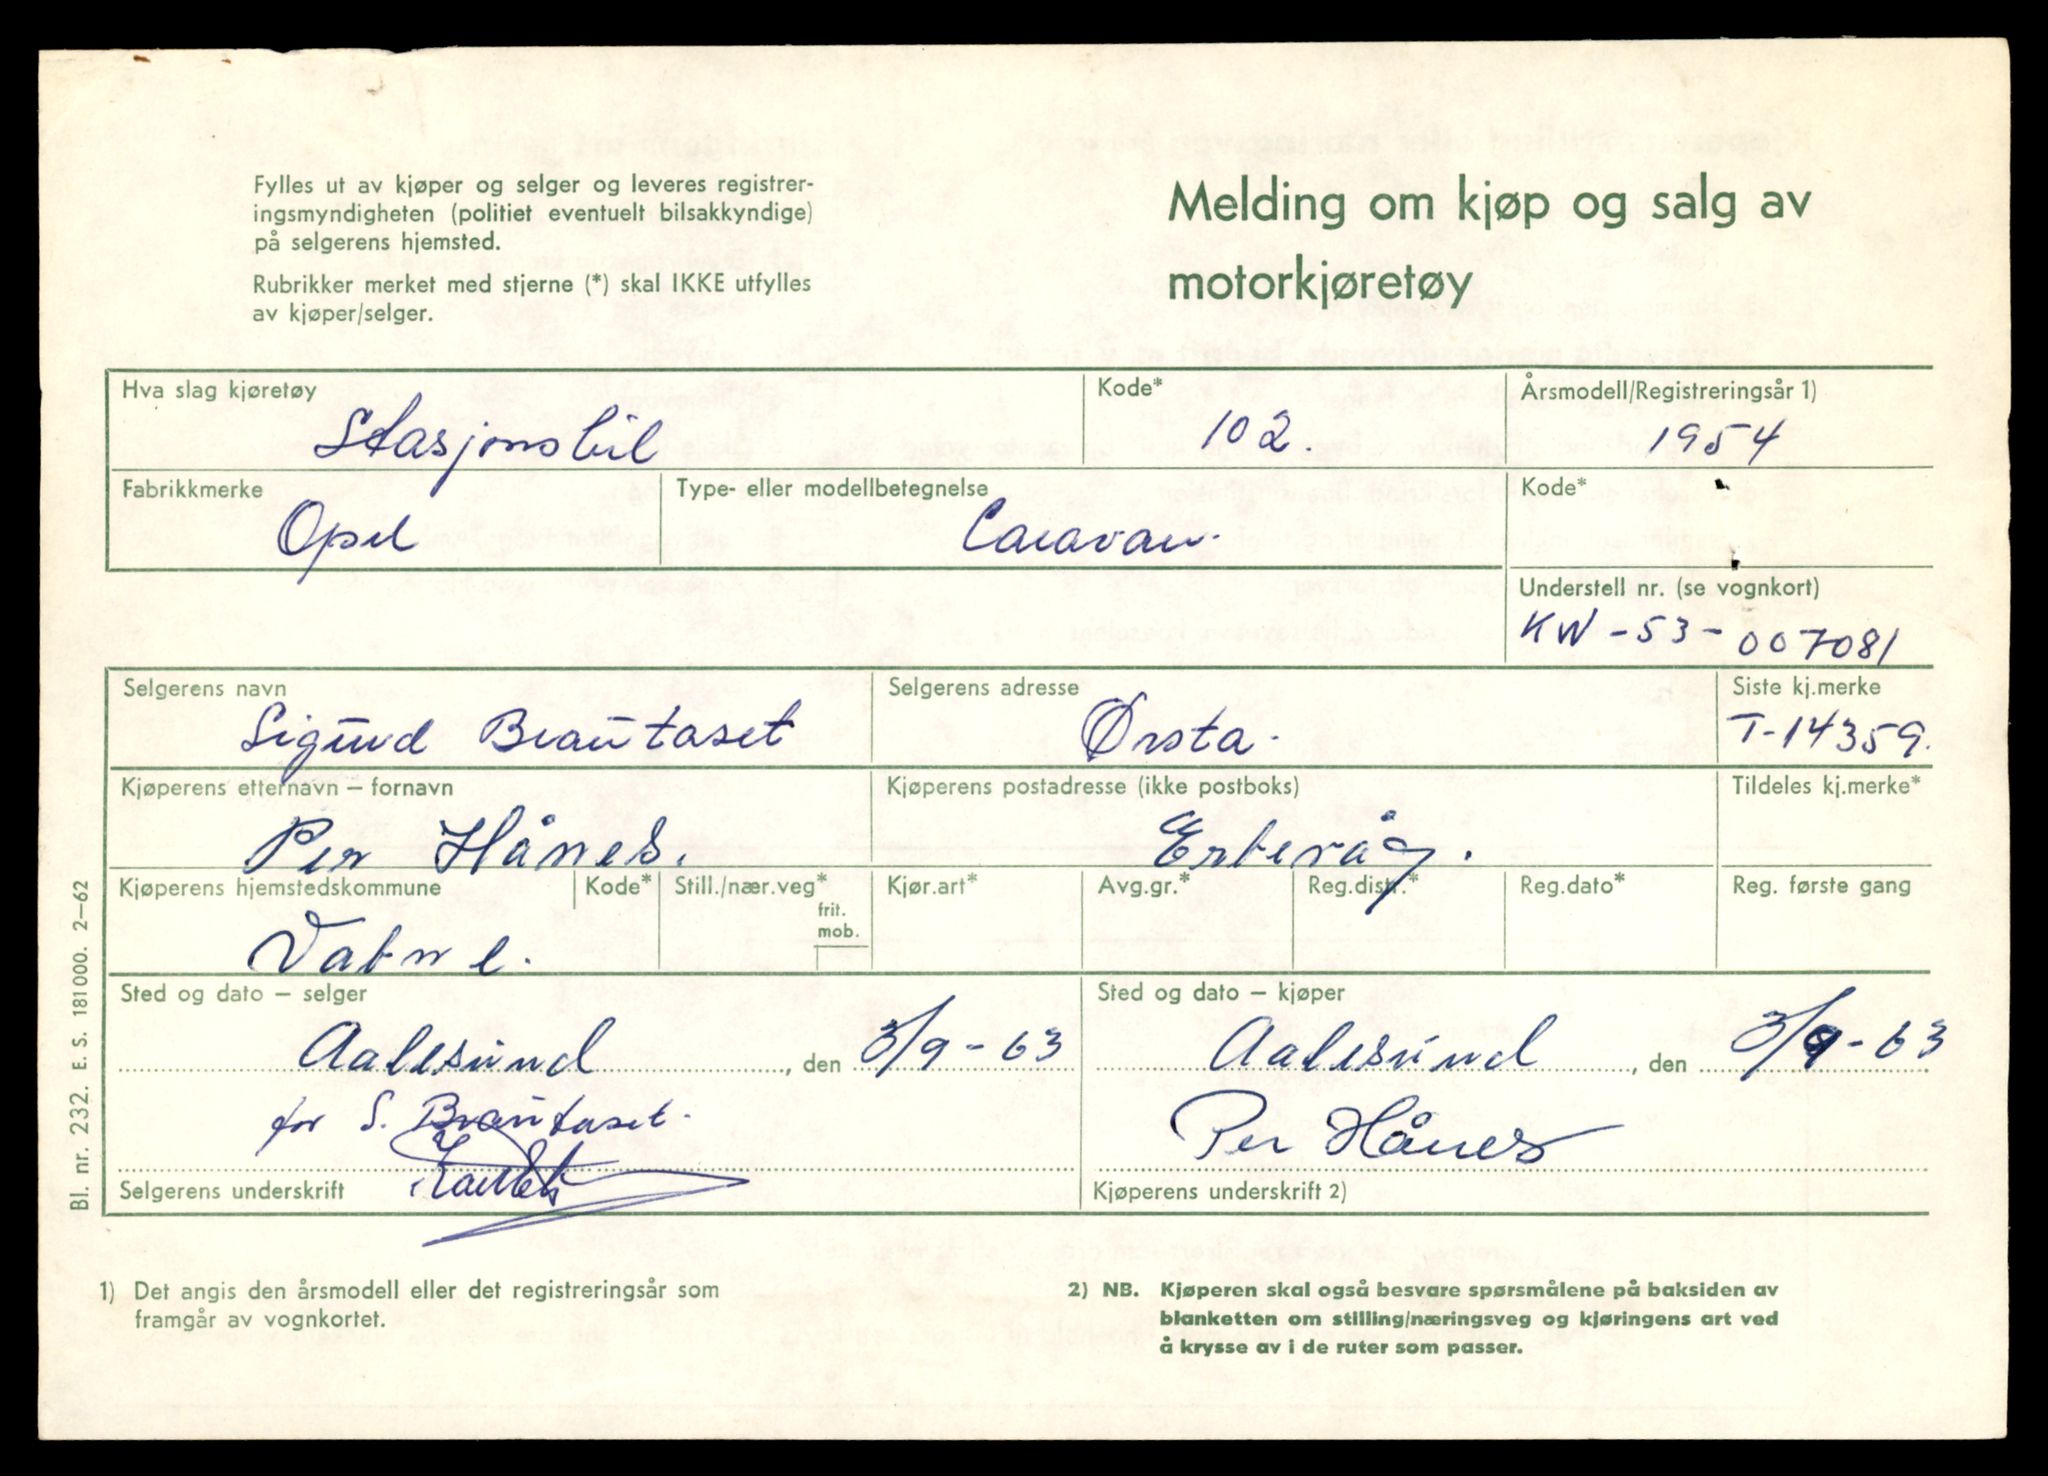 Fylles ut av kjøper og selger og leveres registrer-
ingsmyndigheten (politiet eventuelt bilsakkyndige)
på selgerens hjemsted.
Rubrikker merket med stjerne (*) skal IKKE utfylles
av kjøper/selger.
Melding om kjøp og salg av
motorkjøretøy
Hva slag kjøretøy
Stasjonsbil
Kode*
102.
Årsmodell/Registreringsår 1)
1954
Fabrikkmerke
Opel
Type- eller modellbetegnelse
Caravan.
Kode*
Understell nr. (se vognkort)
KW-53-007081
Selgerens navn
Sigund Brautaset
Selgerens adresse
Ørsta.
Siste kj.merke
T-14359.
Kjøperens etternavn – fornavn
Per Hånes.
Kjøperens postadresse (ikke postboks)
Erteråg.
Tildeles kj.merke*
Kjøperens hjemstedskommune
Vatne.
Kode*
Still./nær.veg*
frit.
mob.
Kjør.art*
Avg.gr.*
Reg.distr.*
Reg.dato*
Reg. første gang
Sted og dato – selger
Aalesund, den 3/9-63
Sted og dato – kjøper
Aalesund, den 3/9-63
for S. Brautaset.
Selgerens underskrift
Per Hånes
Kjøperens underskrift 2)
1) Det angis den årsmodell eller det registreringsår som
framgår av vognkortet.
2) NB. Kjøperen skal også besvare spørsmålene på baksiden av
blanketten om stilling/næringsveg og kjøringens art ved
å krysse av i de ruter som passer.
Bl. nr. 232. E. S. 181000. 2–62